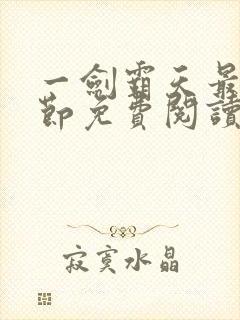 一劍霸天最
節免費閱讀
寂寞水晶